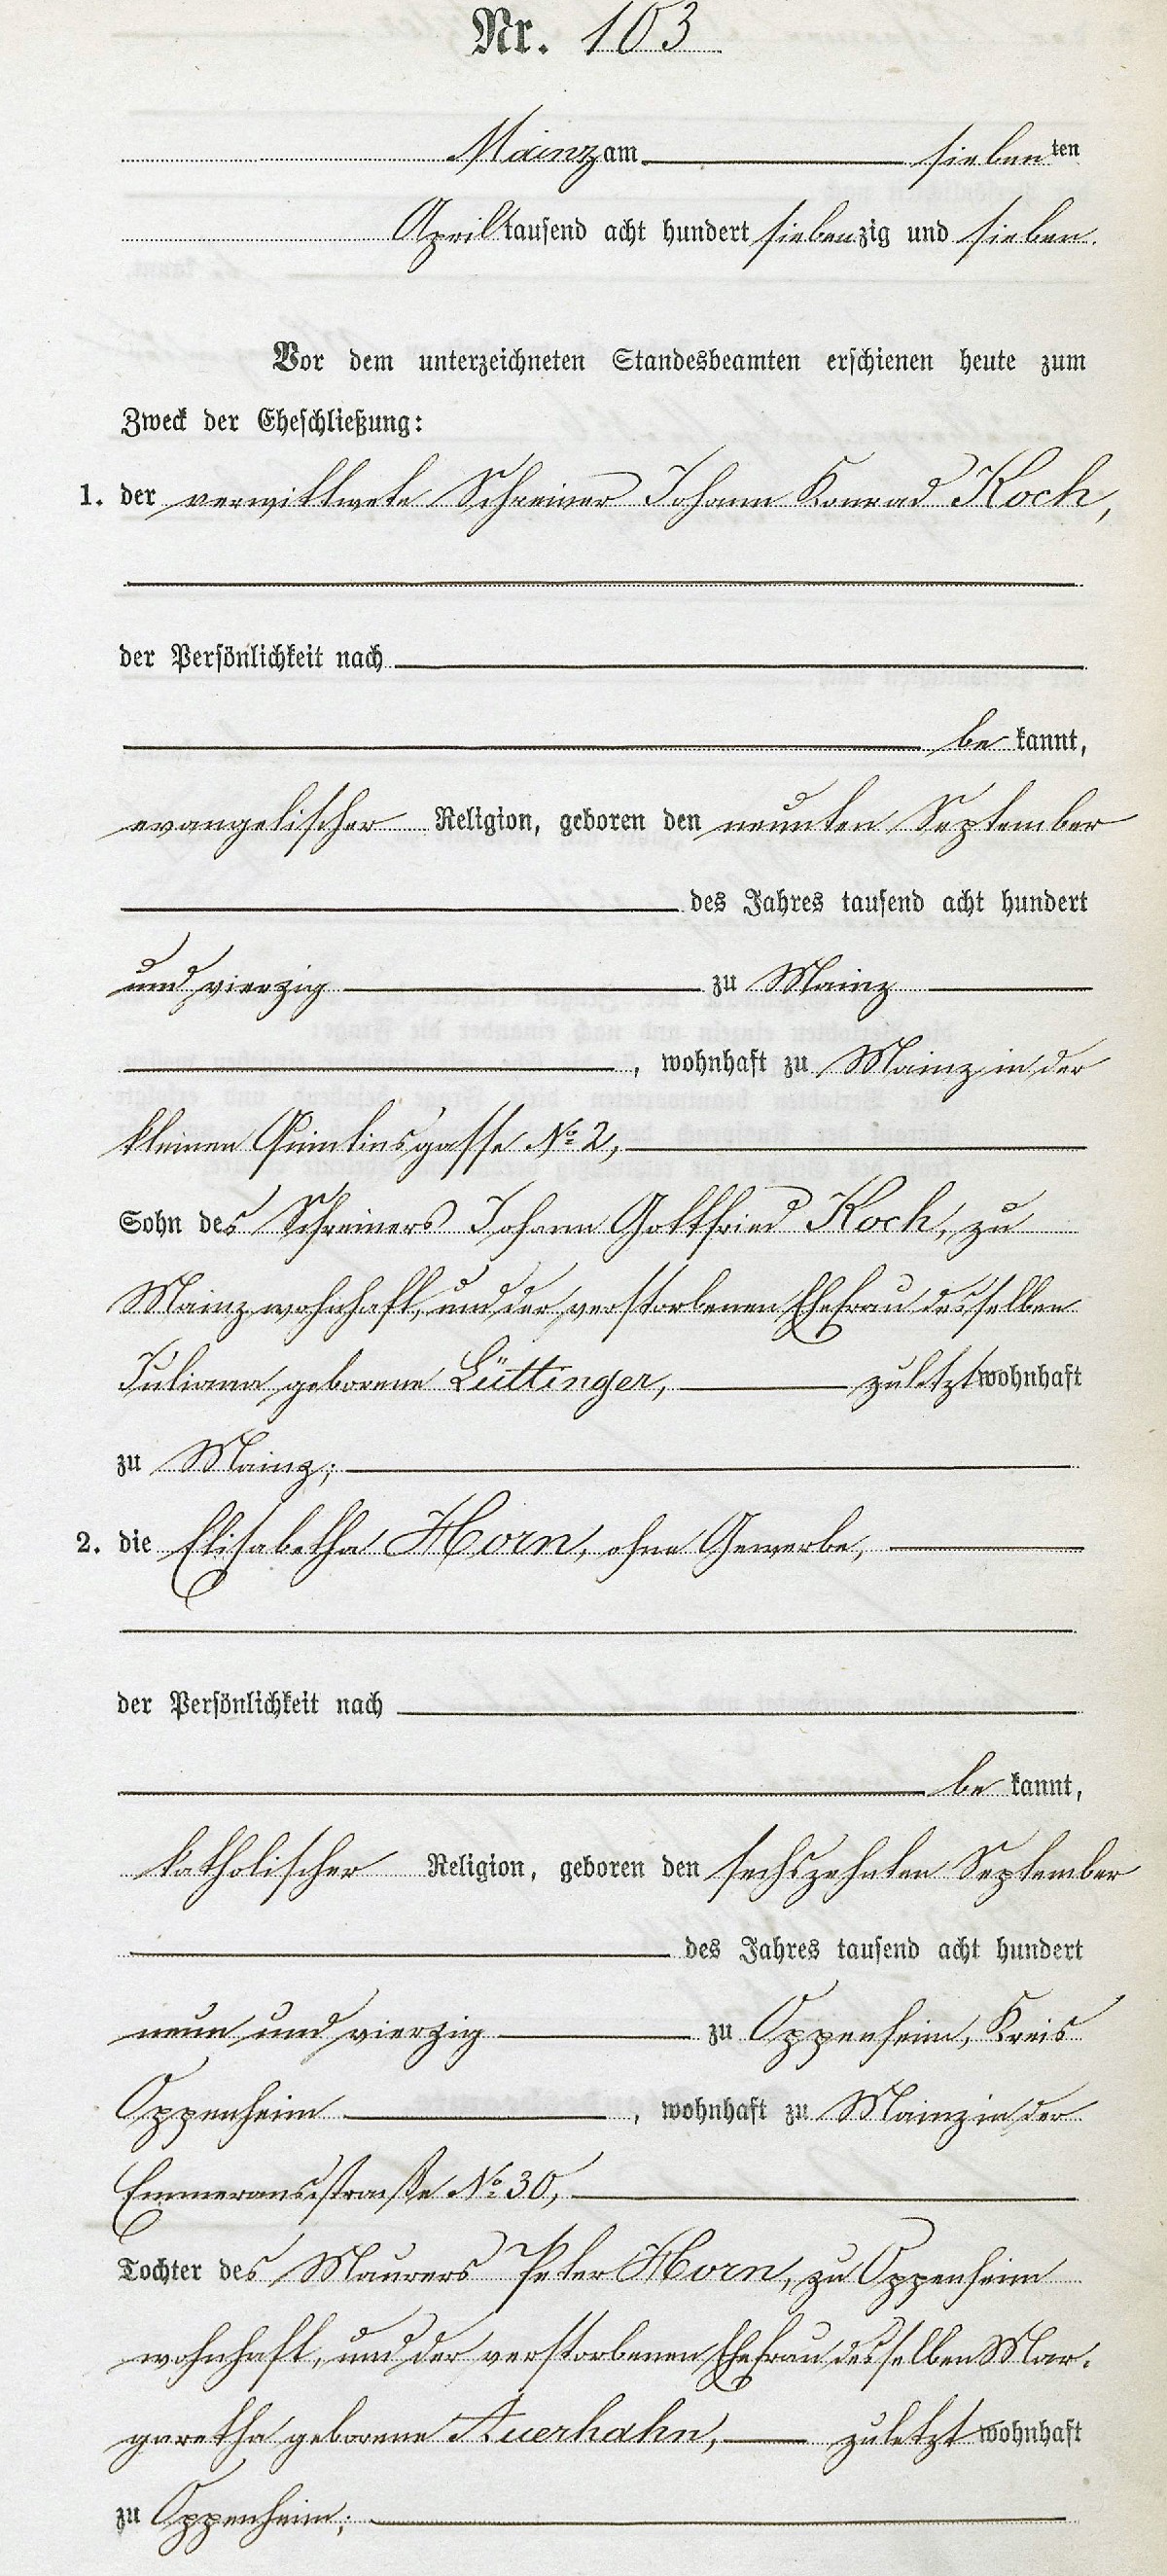 Nr. 103
Mainz am siebenten
April tausend acht hundert siebenzig und sieben.
Vor dem unterzeichneten Standesbeamten erschienen heute zum
Zweck der Eheschließung:
1. der verwittwete Schreiner Johann Konrad Koch,
der Persönlichkeit nach
be kannt,
evangelischer Religion, geboren den neunten September
des Jahres tausend acht hundert
und vierzig zu Mainz
, wohnhaft zu Mainz in der
kleinen Quintinsgasse No 2,
Sohn des Schreiners Johann Gottfried Koch, zu
Mainz wohnhaft, und der verstorbenen Ehefrau desselben
Juliana geborene Lüttinger, zuletzt wohnhaft
zu Mainz;
2. die Elisabetha Horn, ohne Gewerbe,
der Persönlichkeit nach
be kannt,
katholischer Religion, geboren den sechszehnten September
des Jahres tausend acht hundert
neun und vierzig zu Oppenheim, Kreis
Oppenheim , wohnhaft zu Mainz in der
Emmeransstraße No 30,
Tochter des Maurers Peter Horn, zu Oppenheim
wohnhaft, und der verstorbenen Ehefrau desselben Mar-
garetha geborene Auerhahn, zuletzt wohnhaft
zu Oppenheim;